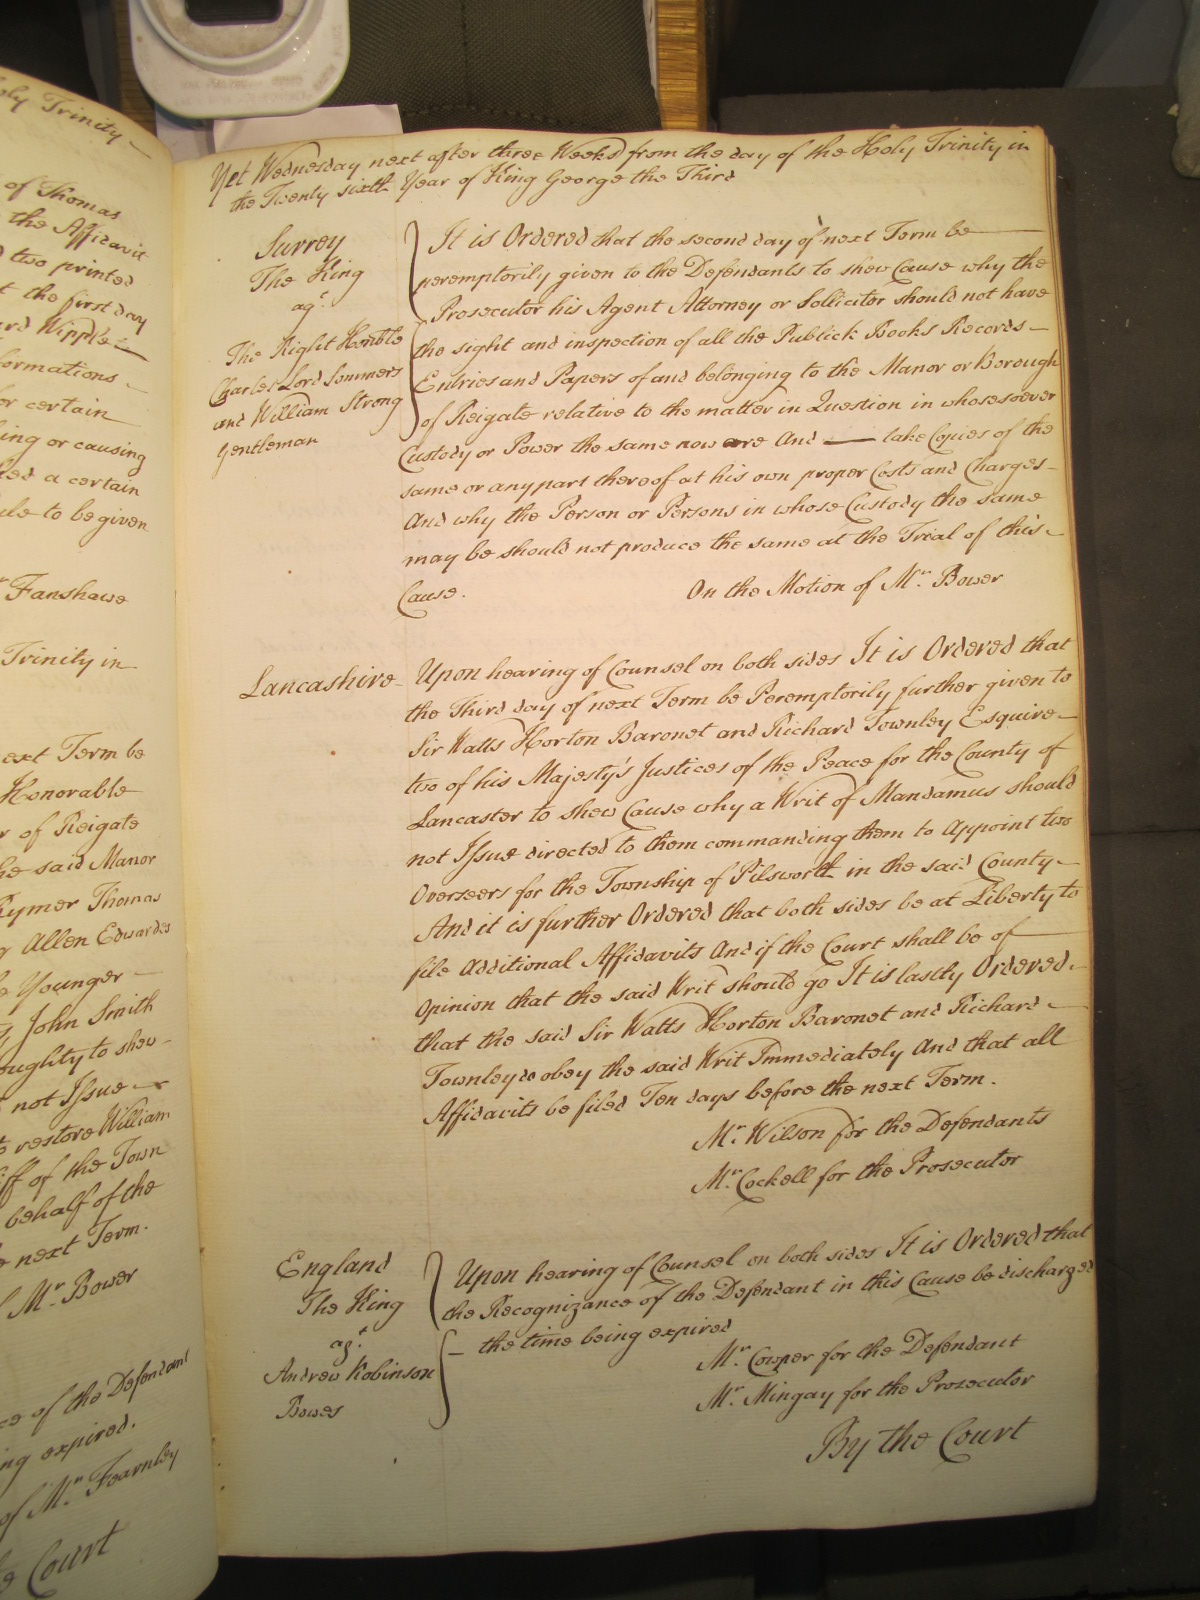 oly Trinity
of Thomas
the Affidavit
two printed
the first day
Wipple
formations
or certain
ing or causing
a certain
to be given
Fanshawe
Trinity in
ext Term be
Honorable
of Reigate
he said Manor
Rymer Thomas
Allen Edwardes
Younger
John Smith
oughty to shew
not Issue
restore William
of the Town
behalf of the
next Term.
Mr. Bower
of the Defendant
ing expired.
of Mr. Fearnley
Court
Yet Wednesday next after three Weeks from the day of the Holy Trinity in
the Twenty sixth Year of King George the Third
Surrey
The King
agt.
The Right Honble
Charles Lord Sommers
and William Strong
Gentleman
It is Ordered that the second day of next Term be
peremptorily given to the Defendants to shew Cause why the
Prosecutor his Agent Attorney or Sollicitor should not have
the sight and inspection of all the Publick Books Records
Entries and Papers of and belonging to the Manor or Borough
of Reigate relative to the matter in Question in whosesoever
Custody or Power the same now are And take Copies of the
same or any part thereof at his own proper Costs and Charges
And why the Person or Persons in whose Custody the same
may be should not produce the same at the Trial of this
Cause.
On the Motion of Mr. Bower
Lancashire
Upon hearing of Counsel on both sides It is Ordered that
the Third day of next Term be Peremptorily further given to
Sir Watts Horton Baronet and Richard Townley Esquire
two of his Majesty's Justices of the Peace for the County of
Lancaster to shew Cause why a Writ of Mandamus should
not Issue directed to them commanding them to Appoint two
Overseers for the Township of Pilsworth in the said County
And it is further Ordered that both sides be at Liberty to
file Additional Affidavits And if the Court shall be of
Opinion that the said Writ should go It is lastly Ordered
that the said Sir Watts Horton Baronet and Richard
Townley do obey the said Writ Immediately And that all
Affidavits be filed Ten days before the next Term.
Mr. Wilson for the Defendants
Mr. Cockell for the Prosecutor
England
The King
agt.
Andrew Robinson
Bowes
Upon hearing of Counsel on both sides It is Ordered that
the Recognizance of the Defendant in this Cause be discharged
the time being expired
Mr. Cowper for the Defendant
Mr. Mingay for the Prosecutor
By the Court